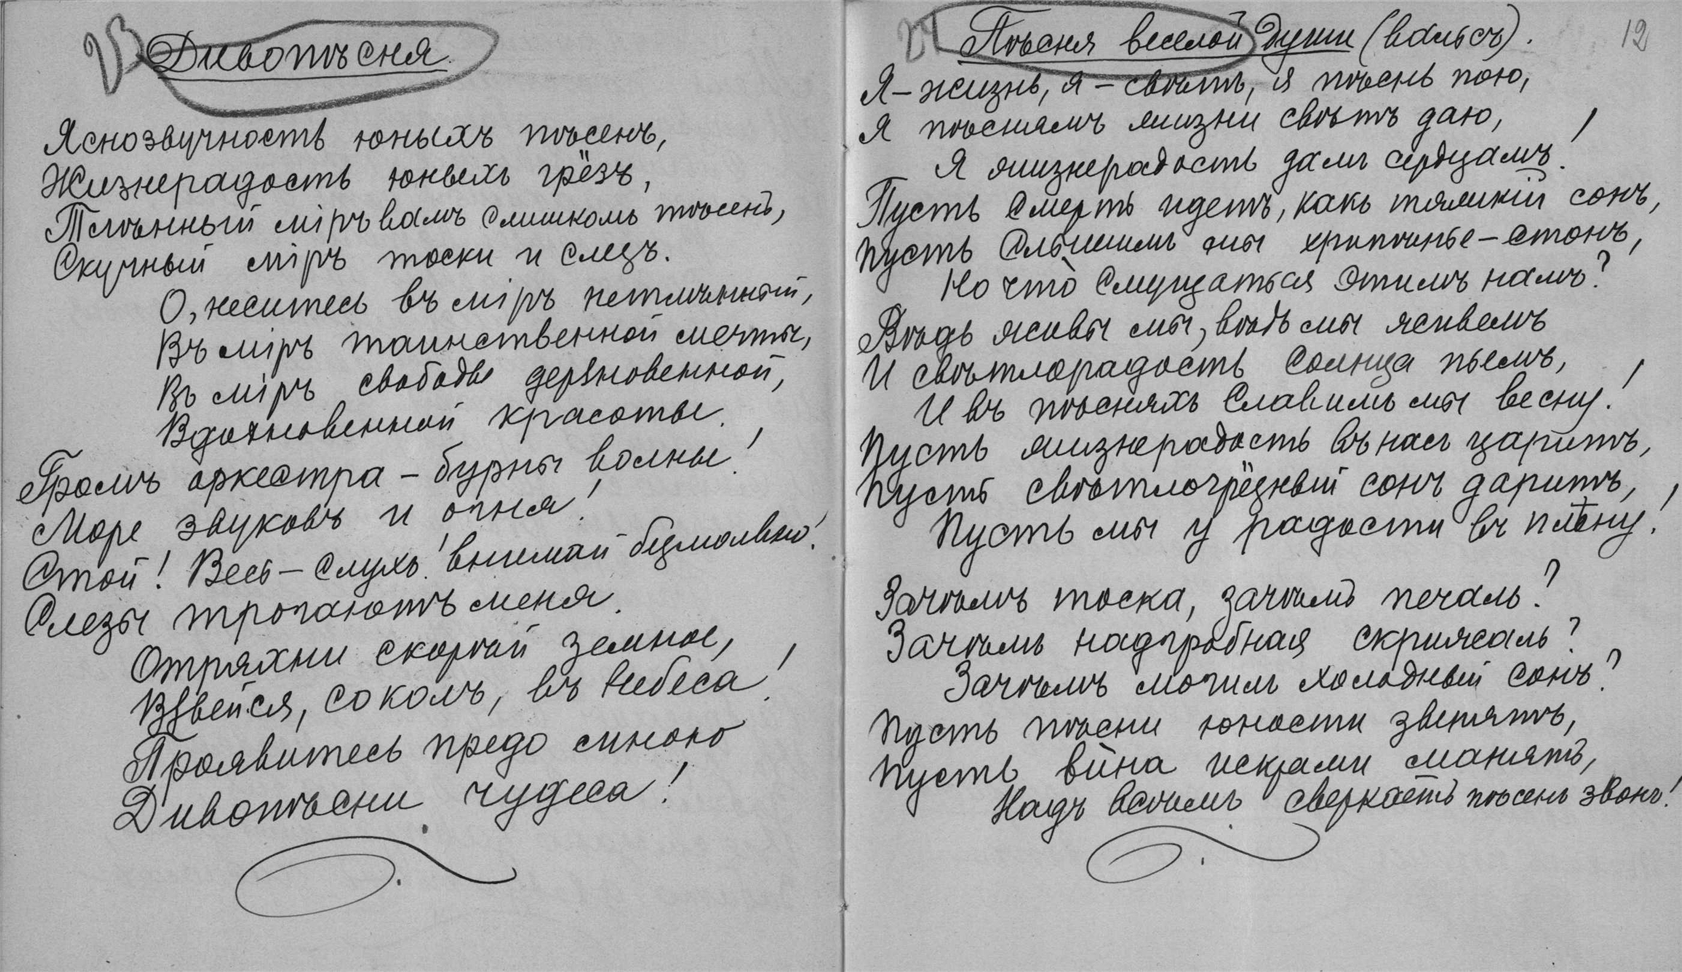 23
Дивопѣсня.
Яснозвучность юныхъ пѣсенъ,
Жизнерадость юныхъ грёзъ,
Тлѣнный мiръ вамъ слишкомъ тѣсенъ,
Скучный мiръ тоски и слезъ.
О, неситесь въ мiръ нетлѣнный,
Въ мiръ таинственной мечты,
Въ мiръ свободы дерзновенной,
Вдохновенной красоты.
Громъ оркестра – бурны волны!
Море звуковъ и огня!
Стой! Весь – слухъ! внимай безмолвно!
Слезы трогаютъ меня.
Отряхни скорѣй земное,
Взвейся, соколъ, въ небеса!
Проявитесь предо мною
Дивопѣсни чудеса!
24
12
Пѣсня веселой души (вальсъ).
Я – жизнь, я – свѣтъ, я пѣснь пою,
Я пѣснямъ жизни свѣтъ даю,
Я жизнерадость дамъ сердцамъ!
Пусть смерть идетъ, какъ тяжкiй сонъ,
Пусть слышимъ мы хрипѣнье – стонъ,
Но что смущаться этимъ намъ?
Вѣдь живы мы, вѣдь мы живемъ
И свѣтлорадость солнца пьемъ,
И въ пѣсняхъ славимъ мы весну!
Пусть жизнерадость въ насъ царитъ,
Пусть свѣтлогрёзный сонъ даритъ,
Пусть мы у радости въ плѣну!
Зачѣмъ тоска, зачѣмъ печаль?
Зачѣмъ надгробная скрижаль?
Зачѣмъ могилъ холодный сонъ?
Пусть пѣсни юности звенятъ,
Пусть вина искрами манятъ,
Надъ всѣмъ сверкаетъ пѣсенъ звонъ!